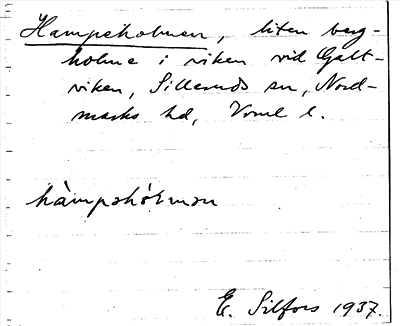 Hampeholmen, liten berg-
holme i viken vid Galt-
viken, Silleruds sn, Nord-
marks hd, Vrml l.
hàmpəhól̀mən
E. Silfors 1937.